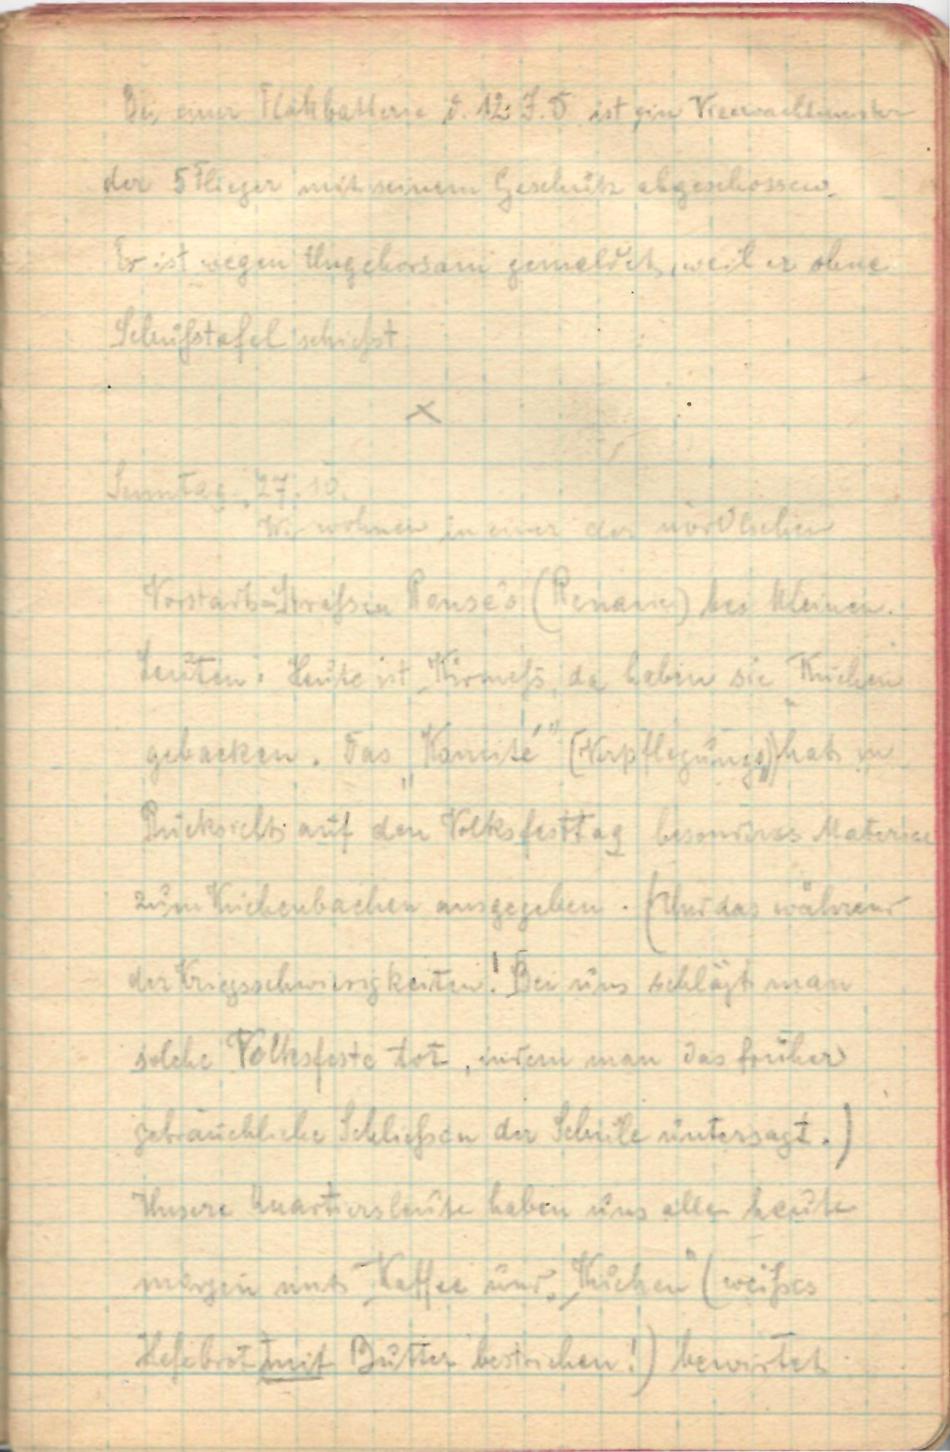 Bei einer Flakbatterie d. 12. I.D ist ein Vicewachtmeister
der 5 Flieger mit seinem Geschütz abgeschossen.
Er ist wegen Ungehorsam gemeldet, weil er ohne
Schußtafel schießt.
×
Sonntag, 27.10.
Wir wohnen in einer der nördlichen
Vorstadt-Strassen (Renaix) bei kleinen
Leuten. Heute ist Kirmeß, da haben sie "Kuchen"
gebacken. Das "Komité" (Verpflegungs) hat in
Rücksicht auf den Volksfesttag besonderes Material
zum Kuchenbacken ausgegeben. (Und das während
der Kriegsschwierigkeiten! Bei uns schlägt man
solche Volksfeste tot, indem man das früher
gebräuchliche Schließen der Schule untersagt.)
Unsere Quartiersleute haben uns alle heute
morgen mit Kaffee und "Kuchen" (weißes
Hefebrot mit Butter bestrichen!) bewirtet